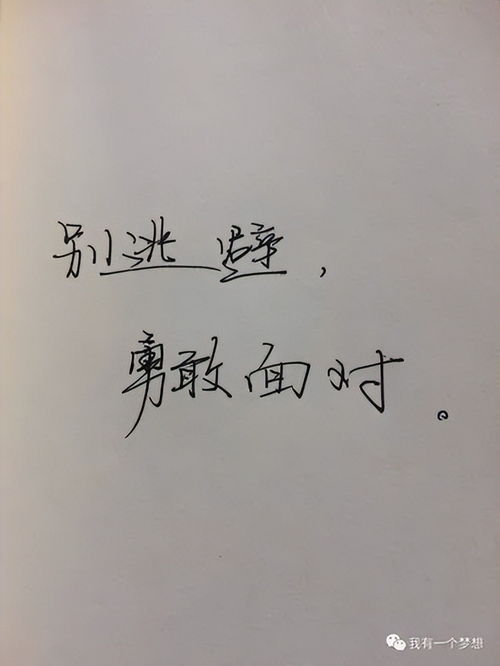 别逃避，
勇敢面对。
我有一个梦想